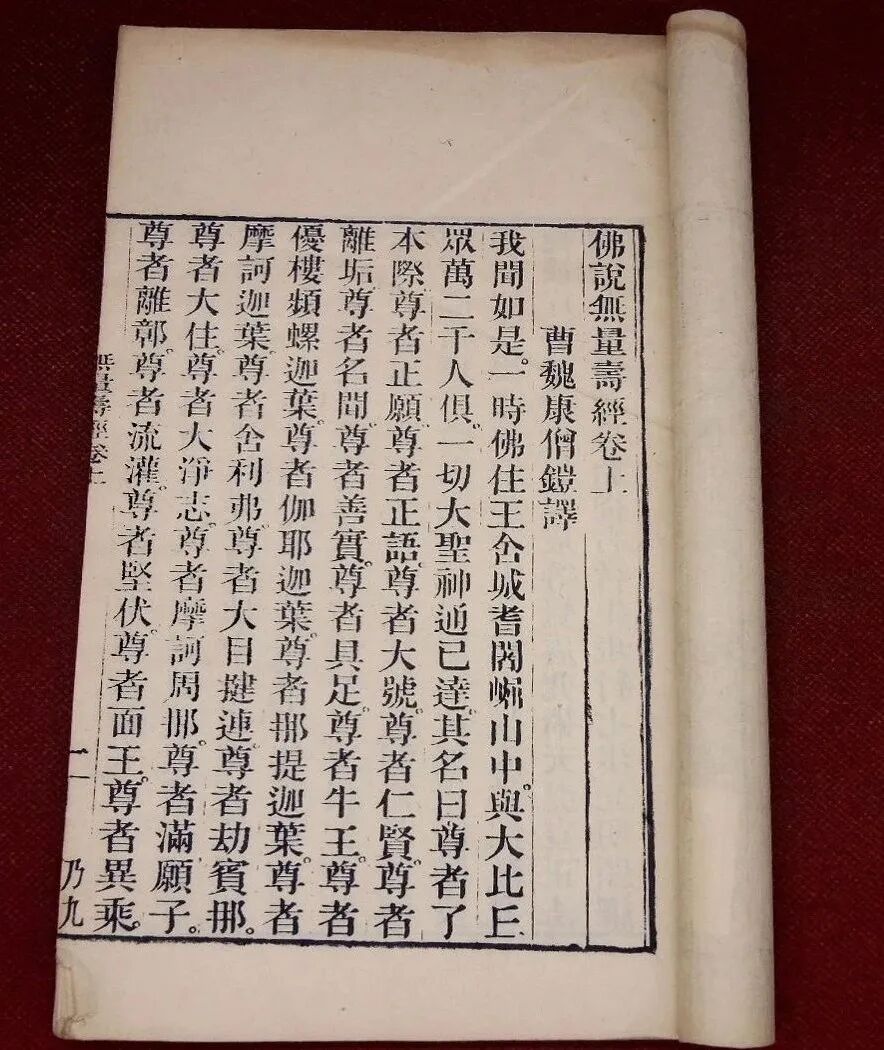 佛說無量壽經卷上
曹魏康僧鎧譯
我聞如是。一時佛住王舍城耆闍崛山中。與大比丘
眾萬二千人俱。一切大聖神通已達。其名曰尊者了
本際。尊者正願。尊者正語。尊者大號。尊者仁賢。尊者
離垢。尊者名聞。尊者善實。尊者具足。尊者牛王。尊者
優樓頻螺迦葉。尊者伽耶迦葉。尊者那提迦葉。尊者
摩訶迦葉。尊者舍利弗。尊者大目揵連。尊者劫賓那。
尊者大住。尊者大淨志。尊者摩訶周那。尊者滿願子。
尊者離鄣。尊者流灌。尊者堅伏。尊者面王。尊者異乘。
無量壽經卷上 二 乃九